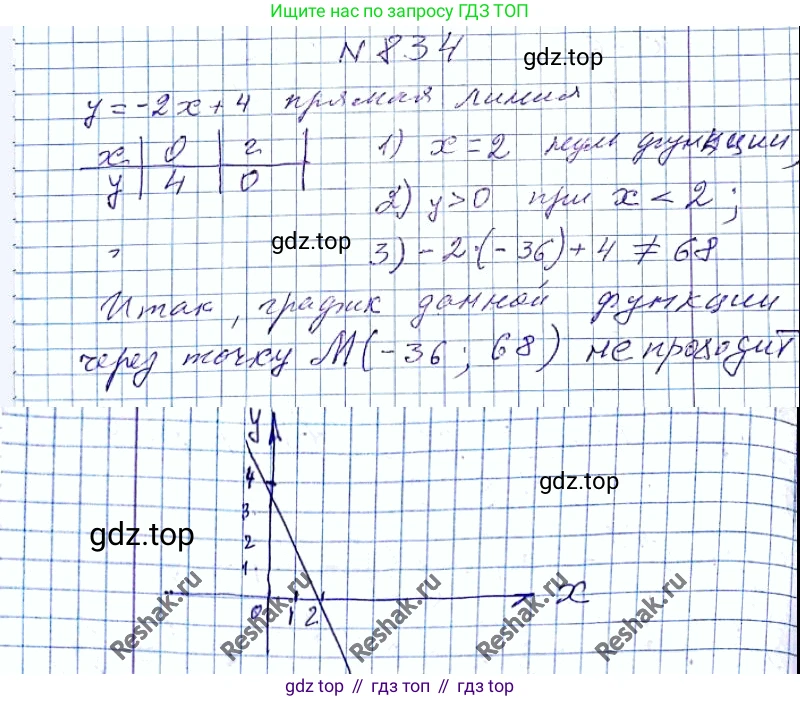 Ищите нас по запросу ГДЗ ТОП
N 834
gdz.top
y = -2x + 4 прямая линия
x 0 2
y 4 0
1) x = 2 нуль функции,
2) y > 0 при x < 2 ;
gdz.top
3) - 2·(-36) + 4 ≠ 68
Итак, график данной функции
через точку M(-36 ; 68) не проходит
y
4
3
2
1
gdz.top
gdz.top
0 1 2 x
Reshak.ru Reshak.ru Reshak.ru Reshak.ru Reshak.ru
gdz top // гдз топ // gdz top